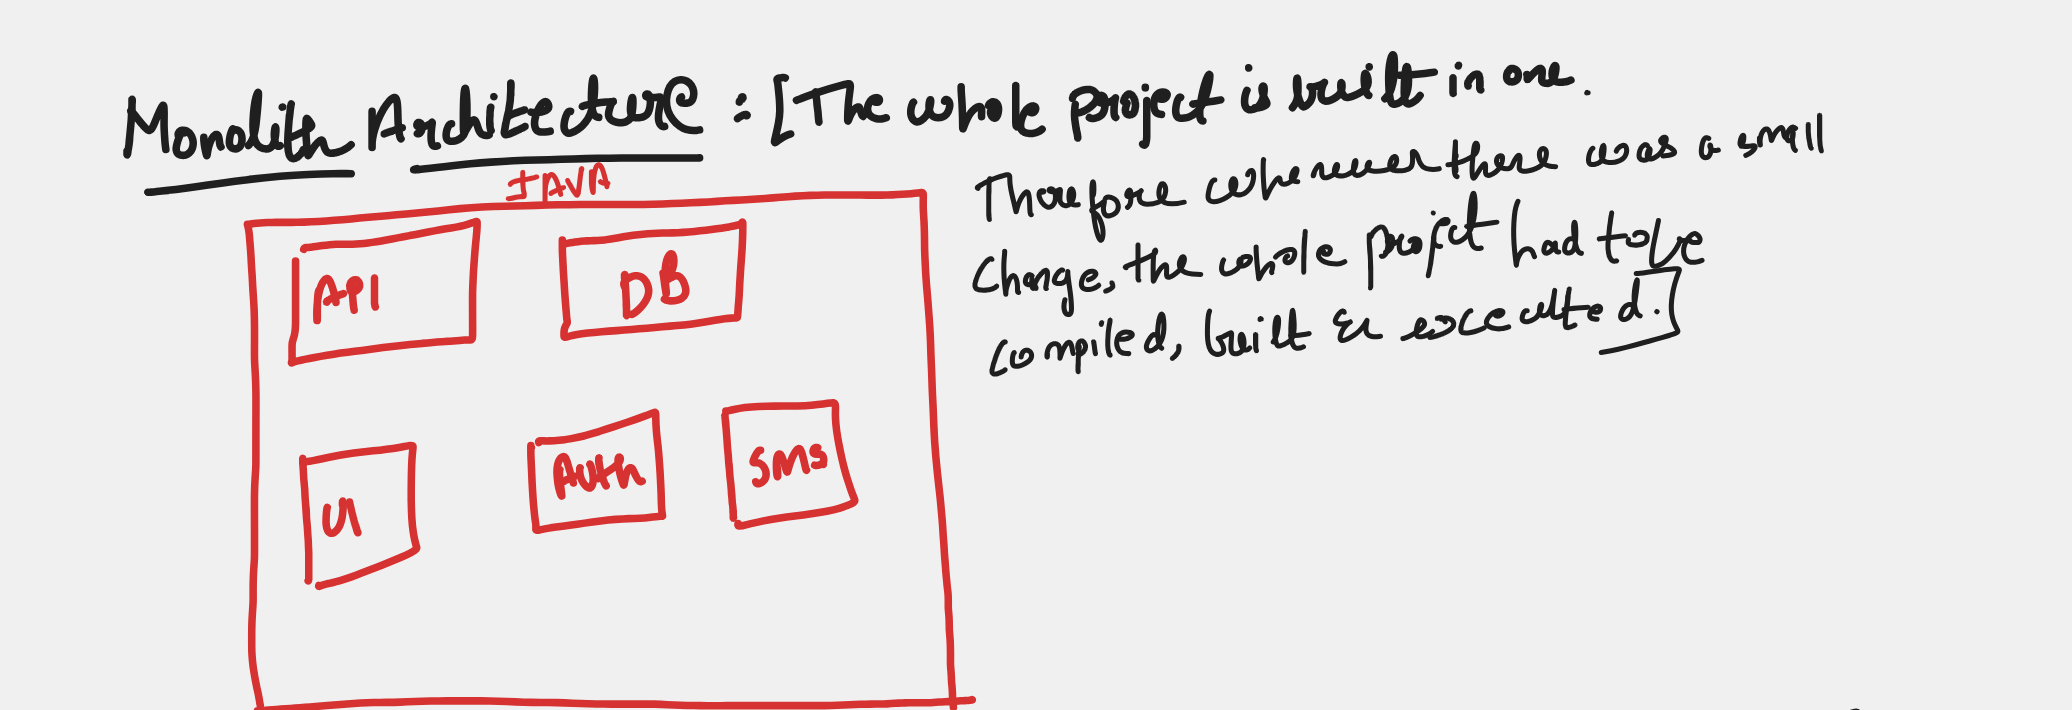 Monolith Architecture : [The whole project is built in one.
Therefore whenever there was a small
change, the whole project had to be
compiled, built & executed.]
JAVA
API
DB
UI
Auth
SMS